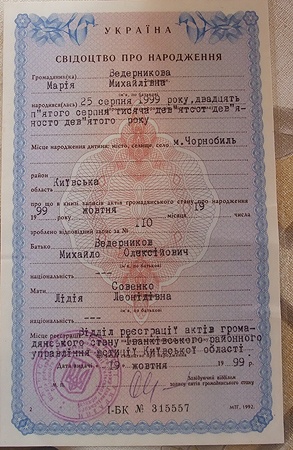 УКРАЇНА
СВІДОЦТВО ПРО НАРОДЖЕННЯ
Громадянин(ка) Ведерникова
Марія Михайлівна
ім'я, по батькові
народився(лась) 25 серпня 1999 року, двадцять
п"ятого серпня тисяча дев"ятсот дев"я-
носто дев"ятого року
Місце народження дитини: місто, селище, село м.Чорнобиль
район
область Київська
про що в книзі записів актів громадянського стану про народження
99 жовтня 19
19 року місяця числа
зроблено відповідний запис за № 110
Батько Ведерников
Михайло Олексійович
ім'я, по батькові
національність ---
Мати Совенко
Лілія Леонідівна
ім'я, по батькові
національність ---
Місце реєстрації Відділ реєстрації актів грома-
дянського стану Іванківського районного
управління юстиції Київської області
Дата видачі 19 жовтня 1999 р.
М. П.
Завідуючий відділом
запису актів громадянського стану
2
І-БК № 315557
МПУ, 1992.